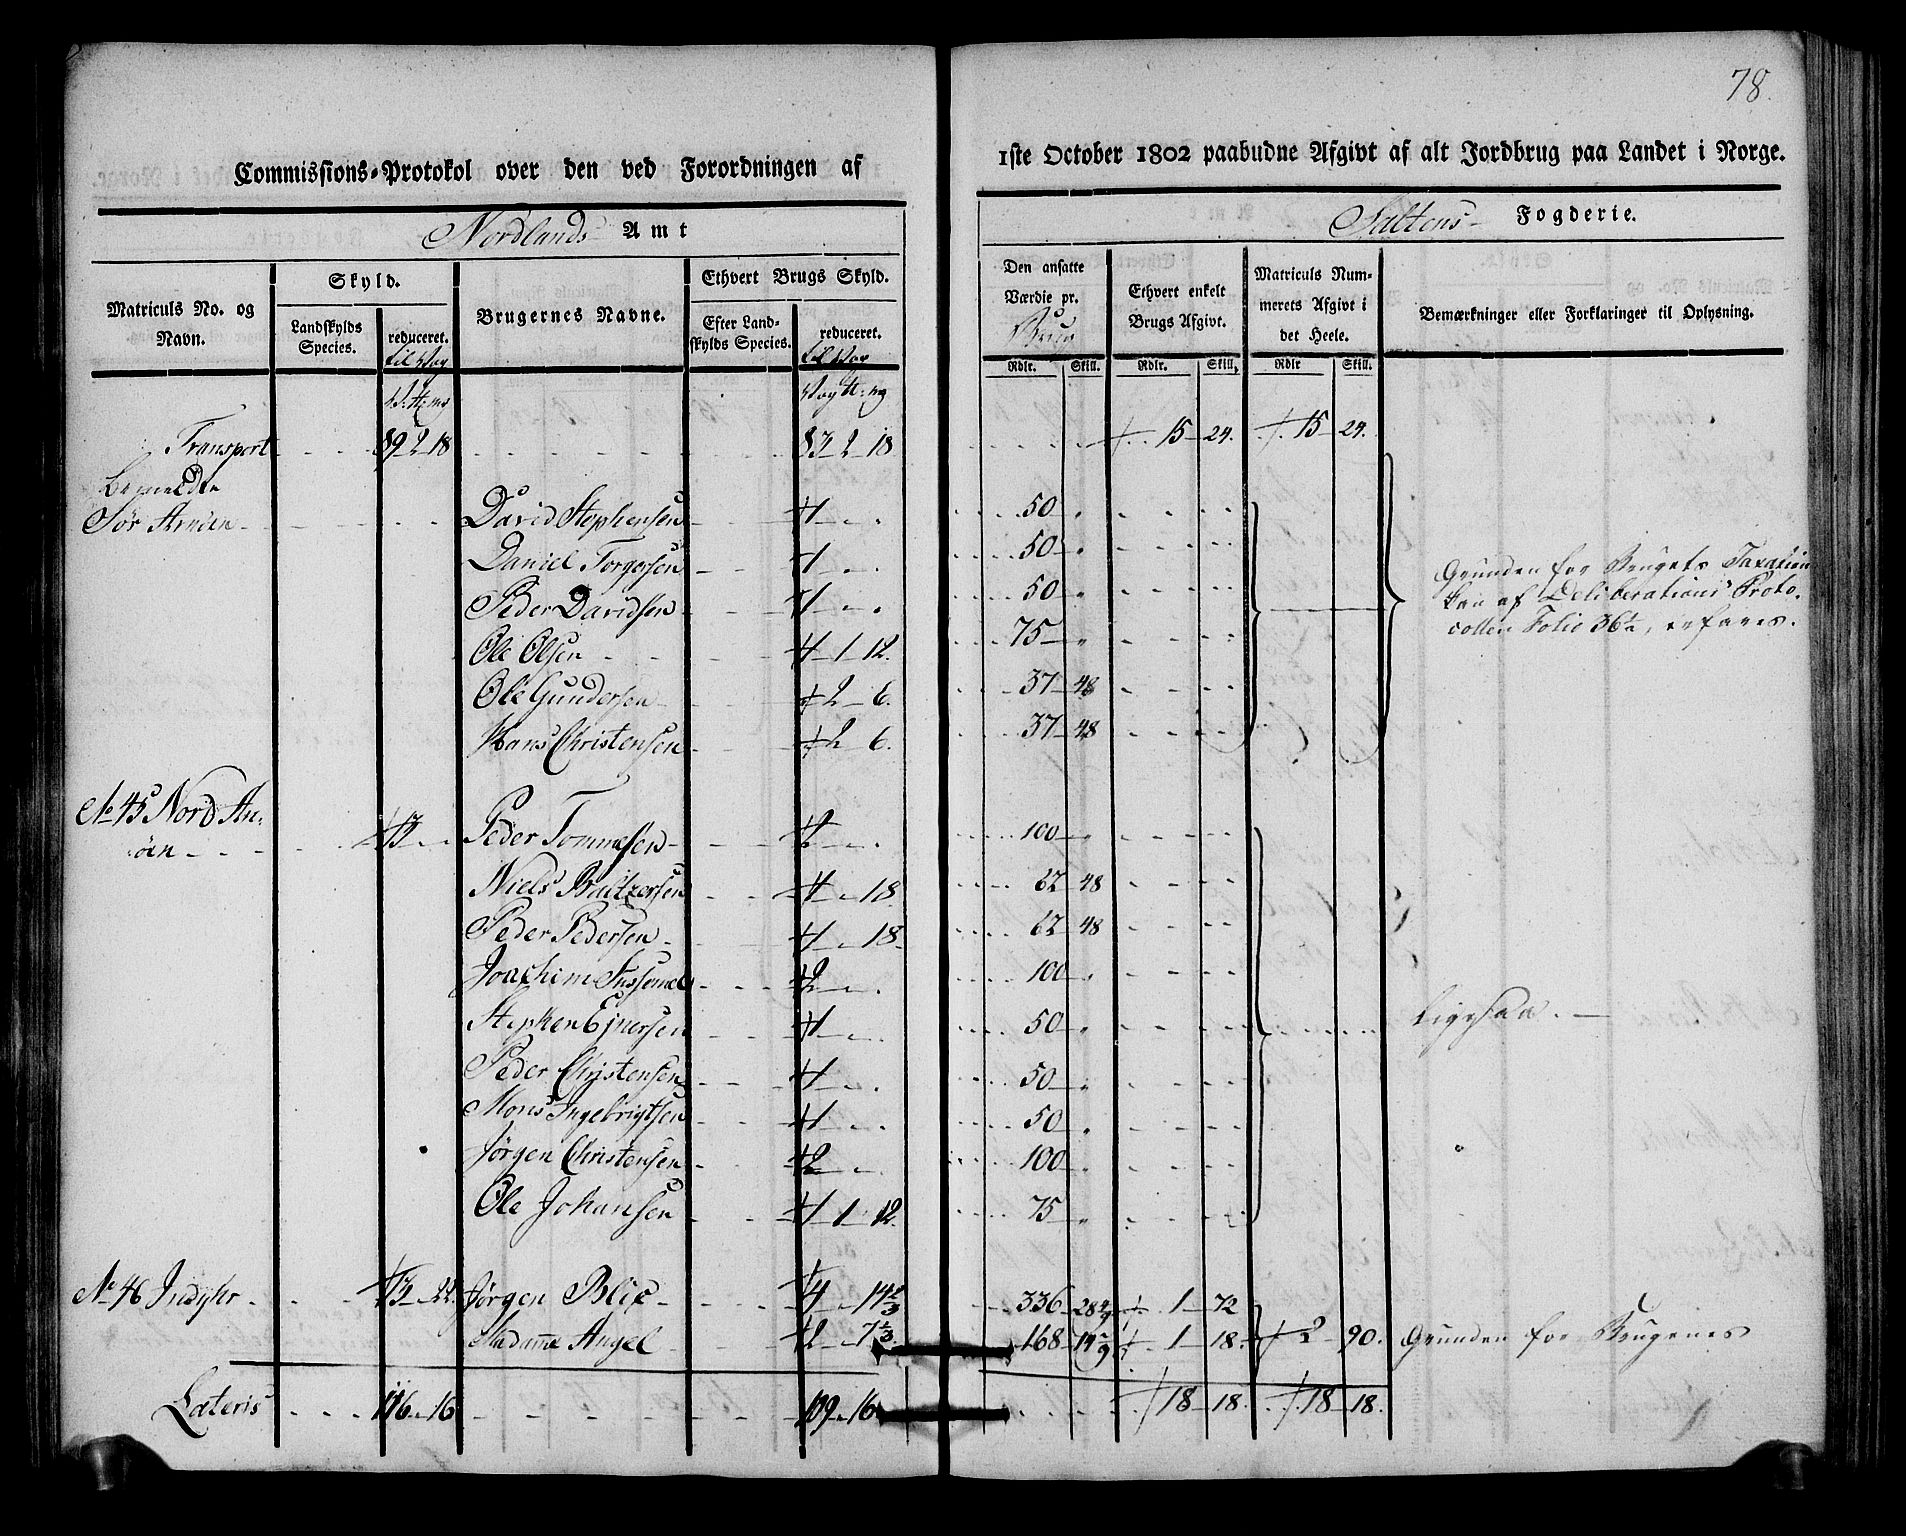 78.
Commissions-Protokol over den ved Forordningen af
1ste October 1802 paabudne Afgivt af alt Jordbrug paa Landet i Norge.
Nordlands Amt
Saltens Fogderie.
Matriculs No. og Navn.
Skyld.
Landskylds Species.
reduceret.
til Vog
Brugernes Navne.
Ethvert Brugs Skyld.
Efter Landskylds Species.
reduceret.
til Vog
Den ansatte Værdie pr. Brug
Rdlr. Skill.
Ethvert enkelt Brugs Afgivt.
Rdlr. Skill.
Matriculs Nummerets Afgivt i det Heele.
Rdlr Skill.
Bemærkninger eller Forklaringer til Oplysning.
Transport 89 2 18 83 2 18 15 24. 15 24.
Bemeldte
Sør Arnöen David Stephensen 1 50
Daniel Torgersen 1 50
Peder Davidsen 1 50
Ole Olsen 1 1 12. 75
Ole Gundersen 2 6. 37 48
Hans Christensen 2 6. 37 48
Grunden for Brugets Taxation
kan af Deliberations Proto-
collen Folio 36½, erfares.
No 45 Nord Ar-
nöen 13 Peder Tommesen 2 100
Niels Baltzersen 1 18 62 48
Peder Pedersen 1 18 62 48
Joachim 2 100
Stephen Ejnersen 1 50
Peder Christensen 1 50
Mons Ingebrigtsen 1 50
Jørgen Christensen 2 100
Ole Johansen 1 1 12. 75
Liggesaa.
No 46 Indyhr 13 22 Jørgen Blix 4 14 2/3 336 28 4/9 1 72
Madame Angel 2 7 1/3. 168 14 2/9 1 18. 2 90. Grunden for Brugenes
Lateris 116 16 109 16 18 18. 18 18.